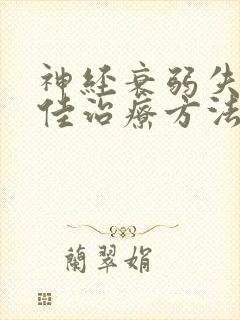 神経衰弱失
佳治療方法
蘭翠娟